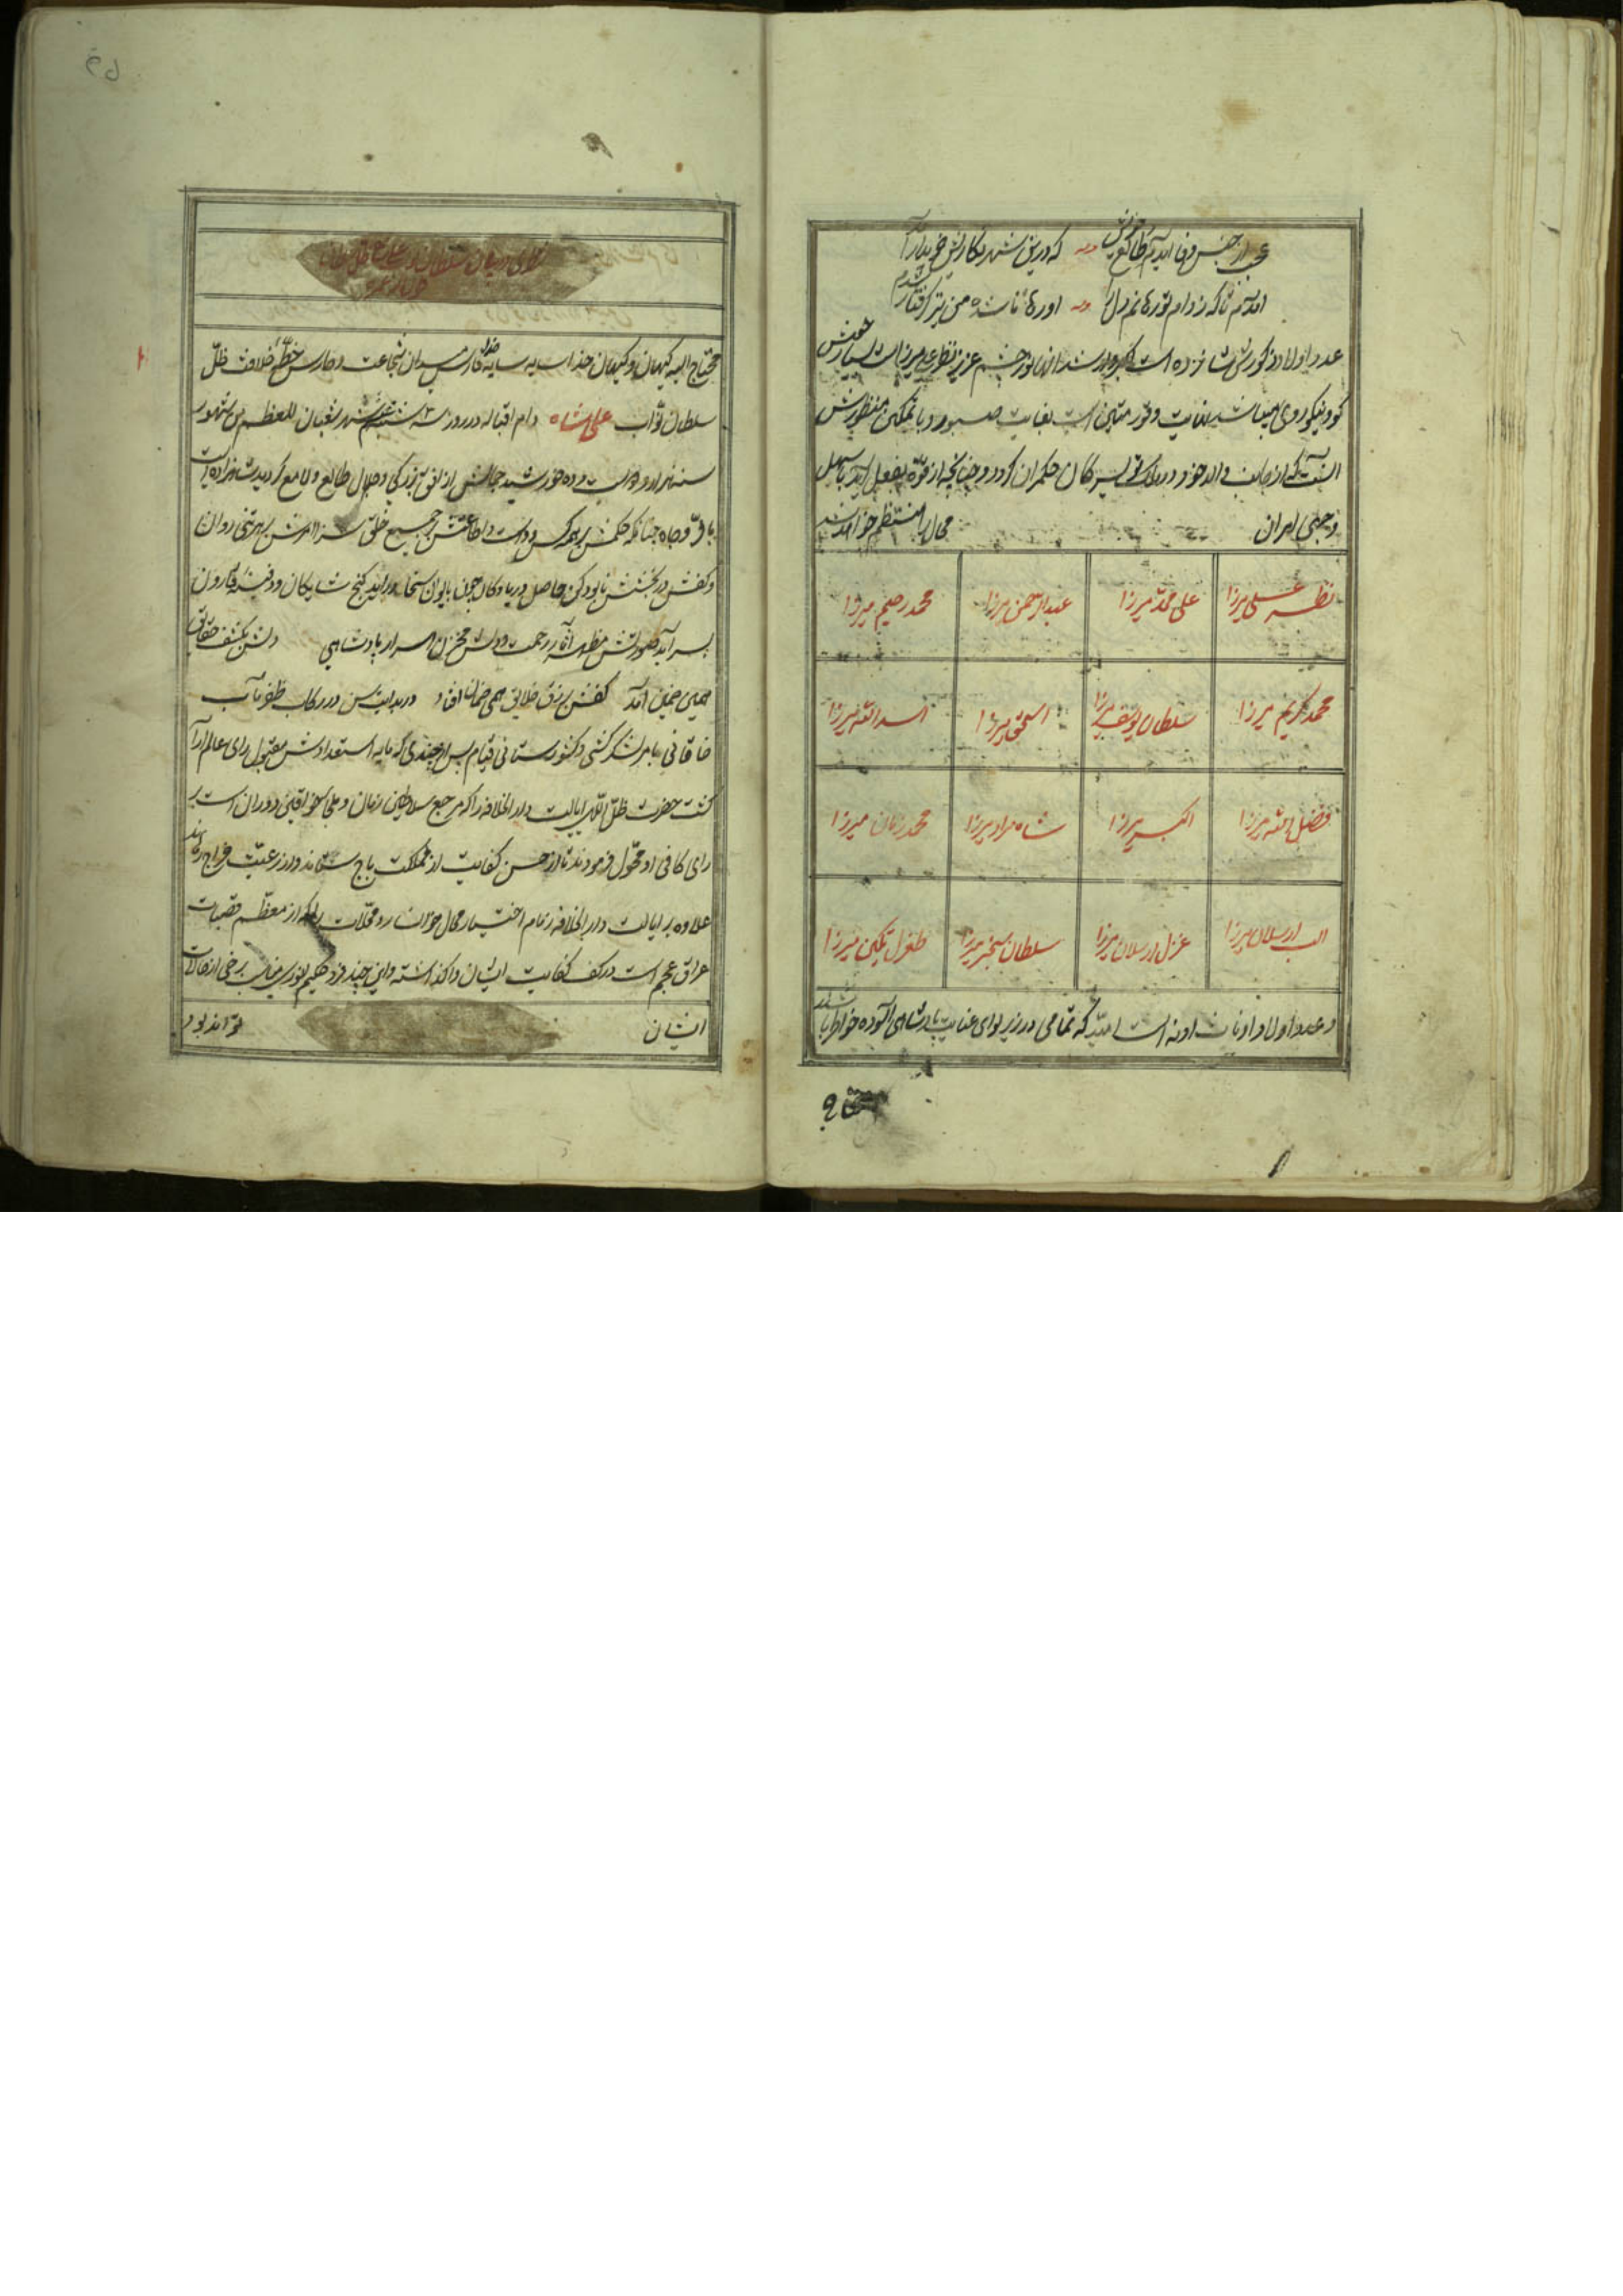 عجب از جنس وفا آیدم و طالع خویش که درین شهر نکارش خریدار آمد
آمدم تا که ز دام تو رهانم دل را او رها نا شده من نیز گرفتار شدم
عدد اولاد ذکورش شانزده است اکبر و ارشد آنها نور چشم عزیز نظر علی میرزا است بسیار خوش
خو و نیکو روی میباشد بغایت وقور متین است بغایت صبور و با تمکین منظورش
آنست که از جانب والد خود در تویسرکان حکمران گردد و چنانچه از قوه بفعل آید باسهل
وجهی ایران محال را منتظم خواهد
نظر علی میرزا
علی محمد میرزا
عبدالرحمن میرزا
محمد رحیم میرزا
محمد کریم میرزا
سلطان یوسف میرزا
اسحق میرزا
اسدالله میرزا
فضل الله میرزا
اکبر میرزا
شاه مراد میرزا
محمد زمان میرزا
الب ارسلان میرزا
قزل ارسلان میرزا
سلطان سنجر میرزا
طغرل تکین میرزا
و عدد اولاد اناث او نه است امید که تمامی در زیر لوای عنایت پادشاهی آسوده خواطر باشند
محتاج الیه کیهان و کیهان خدا سایه خدا فارس میدان شجاعت و حارس خطه خلافت ظل
سلطان نواب علیشاه دام اقباله در روز سه شنبه شهر شعبان المعظم من شهور
سنه هزار و دویست و ده خورشید جمالش از افق بزرگی و جلال طالع و لامع گردید شاهزاده ایست
با فر و جاه چنانکه حکمش بر همه کس رواست و اطاعتش بر جمیع خلق سزا امرش بهر تنی روان
و کفش در بخشش نابود کن حاصل دریا و کان چون بایوان سخا در آید گنج شایگان و دفینه قارون
بسر آید صورتش مظهر آثار رحمت و دلش مخزن اسرار پادشاهی دلش بکشف حقایق
همی ضمین آمد کفش برزق خلایق همی ضمان افتاد در بدایت سن در رکاب ظفر مآب
خاقانی بامر لشکر کشی و کشورستانی قیام پس از چندی که مایه استعدادش مقبول رای عالم آرا
گشت حضرت ظل اللهی ایالت دار الخلافه را که مرجع سلاطین زمان و ملجاء خواقین دوران است بر
رای کافی او محول فرمودند تا از حسن کفایت از مملکت باج ستاند و از رعیت خراج رهاند
علاوه بر ایالت دار الخلافه زمام اختیار محال خوانسار و محلات را که از معظم قصبات
عراق عجم است در کف کفایت ایشان واگذاشته و این چند فرد حکیم انوری مناسب برخی از حالات
ایشان تواند بود